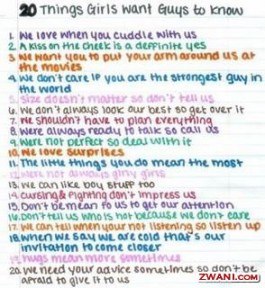 20 Things Girls Want Guys to know
1. We love when you cuddle with us
2. A kiss on the cheek is a deffinite yes
3. We want you to put your arm around us at
the movies
4. We don't care if you are the strongest guy in
the world
5. Size doesn't matter so don't tell us
6. We don't always look our best so get over it
7. We shouldn't have to plan everything
8. We're always ready to talk so call us
9. We're not perfect so deal with it
10. We love surprises
11. The little things you do mean the most
12. We're not always girly girls
13. We can like boy stuff too
14. Cursing & fighting don't impress us
15. Don't be mean to us to get our attention
16. Don't tell us who is hot because we don't care
17. We can tell when your not listening so listen up
18. When we say we are cold that's our
invitation to come closer
19. Hugs mean more sometimes
20. We need your advice sometimes so don't be
afraid to give it to us
ZWANI.com